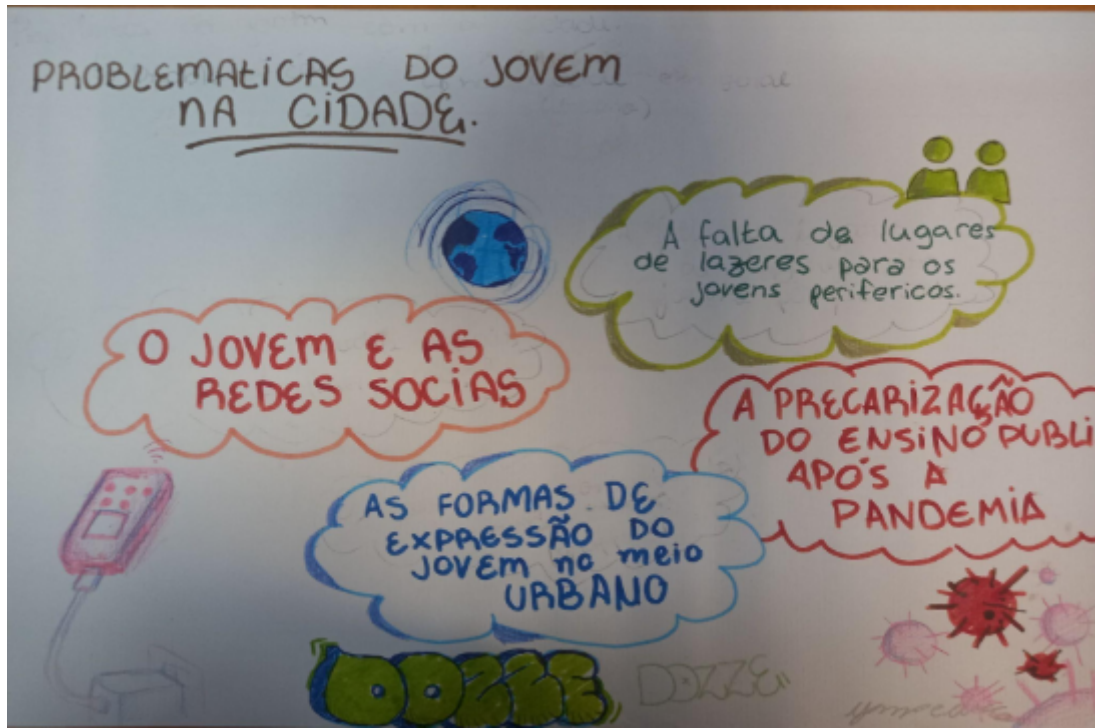 PROBLEMATICAS DO JOVEM
NA CIDADE.
A falta de lugares
de lazeres para os
jovens perifericos.
O JOVEM E AS
REDES SOCIAS
A PRECARIZAÇÃO
DO ENSINO PUBLI
APÓS A
PANDEMIA
AS FORMAS DE
EXPRESSÃO DO
JOVEM no meio
URBANO
DOZZE
DOZZE